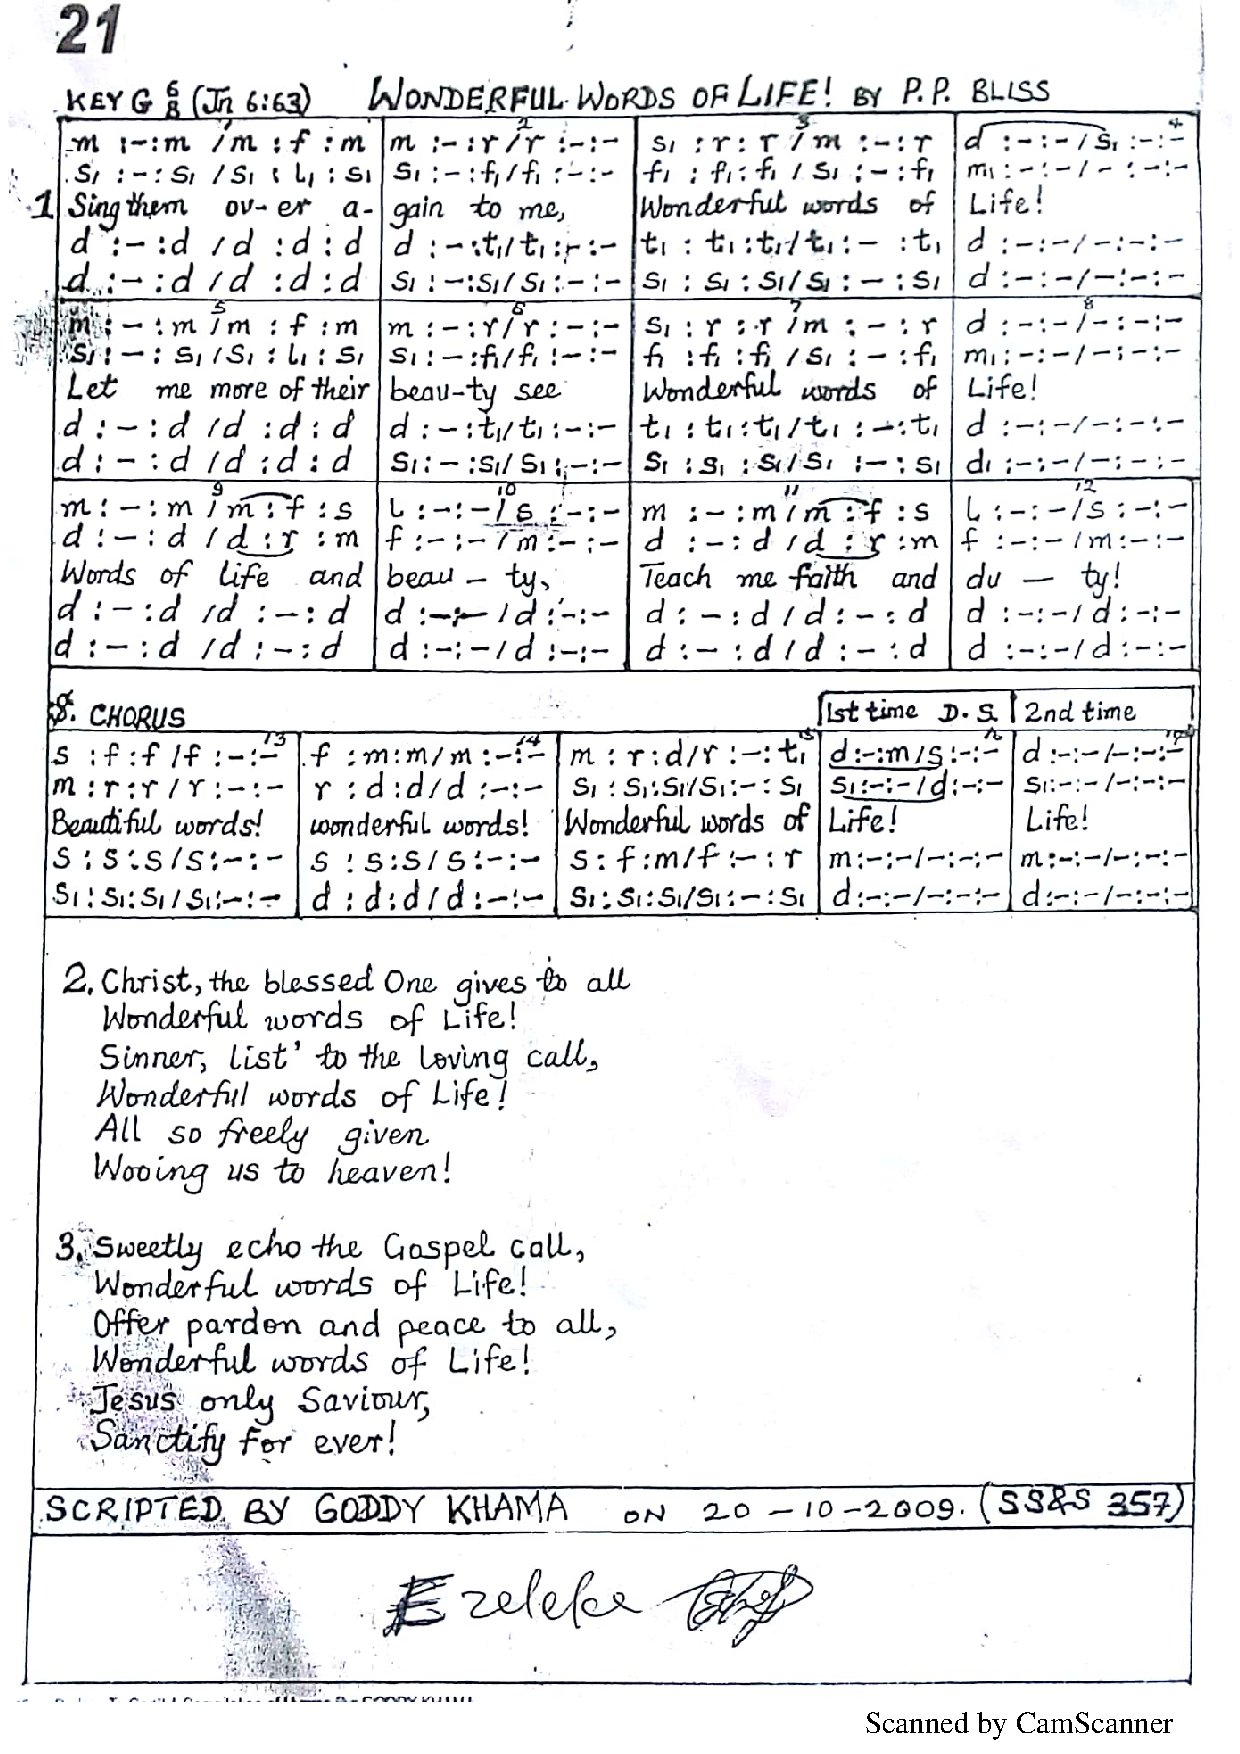 21
KEY G 6/8 (Jn 6:63) WONDERFUL WORDS OF LIFE! BY P.P. BLISS
m :-:m /m : f : m | m :-: r / r :-:- | s₁ : r : r / m :-: r | d :-:- / s₁ :-:-
s₁ :-: s₁ / s₁ : l₁ : s₁ | s₁ :-: f₁ / f₁ :-:- | f₁ : f₁ : f₁ / s₁ :-: f₁ | m₁ :-:- / - :-:-
1 Sing them ov-er a- gain to me, Wonderful words of Life!
d :-: d / d : d : d | d :-: t₁ / t₁ :-:- | t₁ : t₁ : t₁ / t₁ :-: t₁ | d :-:- / - :-:-
d :-: d / d : d : d | s₁ :-: s₁ / s₁ :-:- | s₁ : s₁ : s₁ / s₁ :-: s₁ | d :-:- / - :-:-
m :-: m / m : f : m | m :-: r / r :-:- | s₁ : r : r / m :-: r | d :-:- / - :-:-
s₁ :-: s₁ / s₁ : l₁ : s₁ | s₁ :-: f₁ / f₁ :-:- | f₁ : f₁ : f₁ / s₁ :-: f₁ | m₁ :-:- / - :-:-
Let me more of their beau-ty see Wonderful words of Life!
d :-: d / d : d : d | d :-: t₁ / t₁ :-:- | t₁ : t₁ : t₁ / t₁ :-: t₁ | d :-:- / - :-:-
d :-: d / d : d : d | s₁ :-: s₁ / s₁ :-:- | s₁ : s₁ : s₁ / s₁ :-: s₁ | d₁ :-:- / - :-:-
m :-: m / m : f : s | l :-:- / s :-:- | m :-: m / m : f : s | l :-:- / s :-:-
d :-: d / d : r : m | f :-:- / m :-:- | d :-: d / d : r : m | f :-:- / m :-:-
Words of life and beau - ty, Teach me faith and du - ty!
d :-: d / d :-: d | d :-:- / d :-:- | d :-: d / d :-: d | d :-:- / d :-:-
d :-: d / d :-: d | d :-:- / d :-:- | d :-: d / d :-: d | d :-:- / d :-:-
S. CHORUS 1st time D.S. 2nd time
s : f : f / f :-:- | f : m : m / m :-:- | m : r : d / r :-: t₁ | d :-: m / s :-:- | d :-:- / - :-:-
m : r : r / r :-:- | r : d : d / d :-:- | s₁ : s₁ : s₁ / s₁ :-: s₁ | s₁ :-:- / d :-:- | s₁ :-:- / - :-:-
Beautiful words! wonderful words! Wonderful words of Life! Life!
s : s : s / s :-:- | s : s : s / s :-:- | s : f : m / f :-: r | m :-:- / - :-:- | m :-:- / - :-:-
s₁ : s₁ : s₁ / s₁ :-:- | d : d : d / d :-:- | s₁ : s₁ : s₁ / s₁ :-: s₁ | d :-:- / - :-:- | d :-:- / - :-:-
2. Christ, the blessed One gives to all
Wonderful words of Life!
Sinner, list' to the loving call,
Wonderful words of Life!
All so freely given
Wooing us to heaven!
3. Sweetly echo the Gospel call,
Wonderful words of Life!
Offer pardon and peace to all,
Wonderful words of Life!
Jesus only Saviour,
Sanctify for ever!
SCRIPTED BY GODDY KHAMA ON 20-10-2009. (SS&S 357)
Ezeleke
Scanned by CamScanner